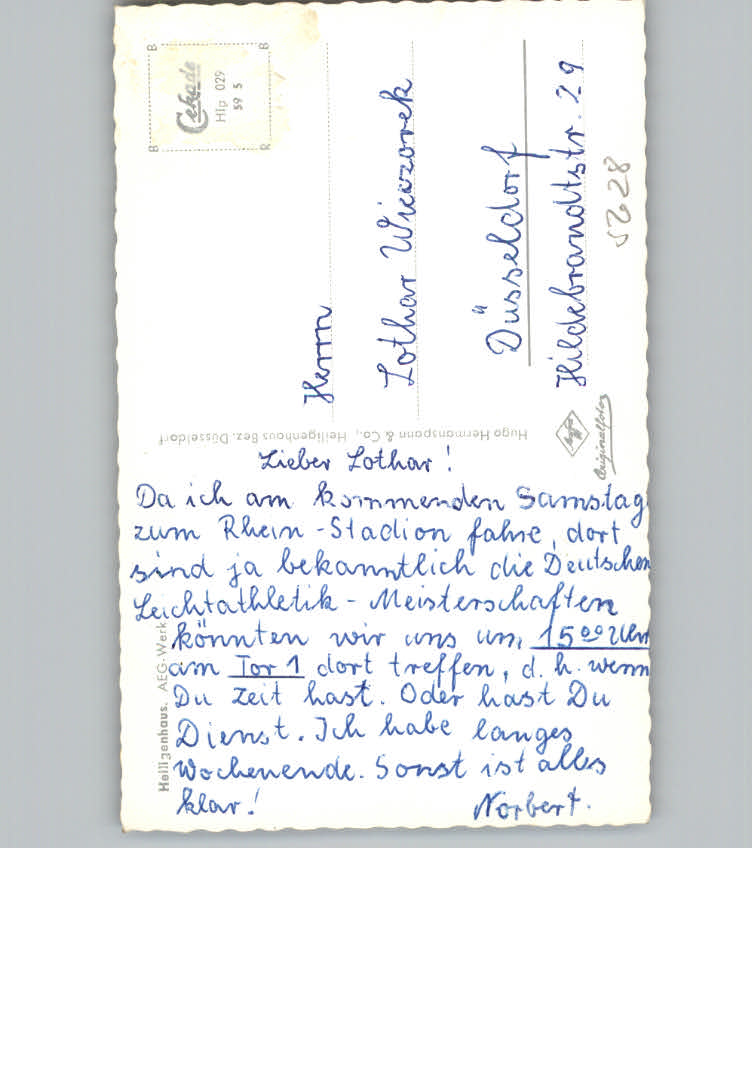 Cekade
Hlp 029
59 5
B
B
B
R
Herrn
Lothar Wieczorek
Düsseldorf
Hildebrandtstr. 29
5628
Hugo Hermannspann & Co., Heiligenhaus Bez. Düsseldorf
Agfa
Originalfoto
Lieber Lothar!
Da ich am kommenden Samstag
zum Rhein-Stadion fahre, dort
sind ja bekanntlich die Deutschen
Leichtathletik-Meisterschaften
könnten wir uns um 15⁰⁰ Uhr
am Tor 1 dort treffen, d.h. wenn
Du Zeit hast. Oder hast Du
Dienst. Ich habe langes
Wochenende. Sonst ist alles
klar! Norbert.
Heiligenhaus. AEG-Werk